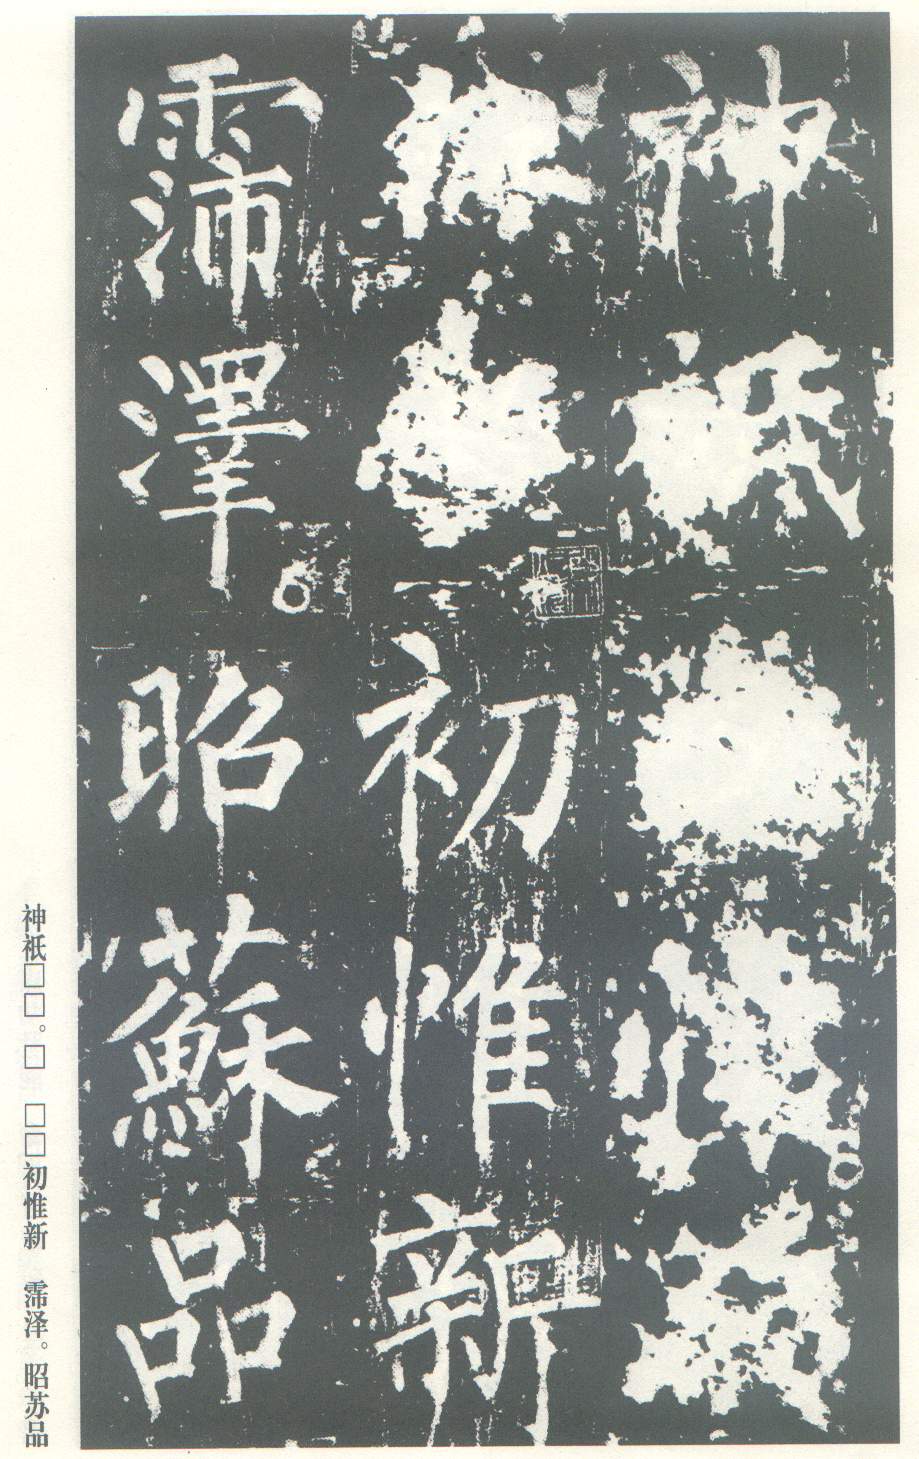 神祇
初惟新
霈澤昭蘇品
神祇□□。□　□□初惟新　霈泽。昭苏品